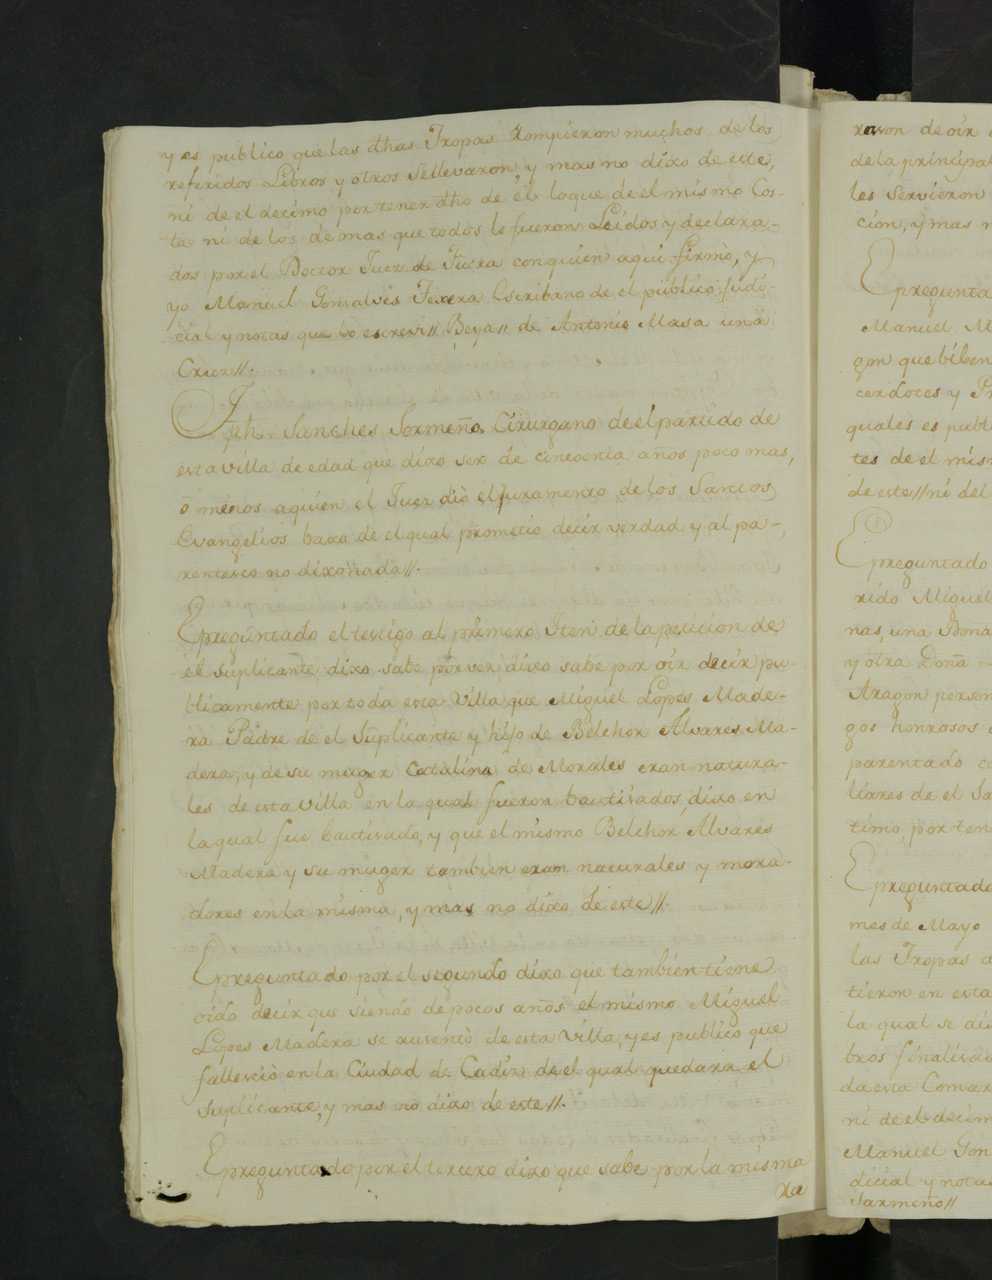 y es publico que las dhas Tropas Rompieron muchos de los
referidos Libros y otros se llevaron y mas no dixo de este,
ni de el decimo por tener dho de èl lo que de el mismo Cos-
ta ni de los de mas que todos le fueron Leidos y declara-
dos por el Doctor Juez de Fuera con quien aqui firmò, y
yo Manuel Gonsalves Texera Escribano de el publico Judi-
cial y notas que lo escrevi// Beya// de Antonio Masa una
Cruz//.
Jph. Sanches Sormeño Cirurgano de el partido de
esta Villa de edad que dixo ser de cincoenta años poco mas,
ò menos a quien el Juez diò el Juramento de los Santos
Evangelios baxo de el qual prometio decir verdad y al pa-
rentesco no dixo nada//.
E preguntado el testigo al primero Item de la peticion de
el Suplicante dixo sabe por ver, dixo sabe por oir decir pu-
blicamente por toda esta Villa que Miguel Lopes Made-
ra Padre de el Suplicante y hijo de Belchor Alvares Ma-
dera, y de su muger Catalina de Morales eran natura-
les de esta Villa en la qual fueron bautizados, dixo en
la qual fue bautizado, y que el mismo Belchor Alvares
Madera y su muger tambien eran naturales y mora-
dores en la misma, y mas no dixo de este//.
E preguntado por el segundo dixo que tambien tiene
oido decir que siendo de pocos años el mismo Miguel
Lopes Madera se ausentò de esta Villa, y es publico que
fallesciò en la Ciudad de Cadiz de el qual quedara el
Suplicante, y mas no dixo de este//.
E preguntado por el tercero dixo que sabe por la misma
ra
razon de oir
de la principal
les servieron
cion, y mas n
E pregunta
Manuel M
gon que biben
cerdotes y Pr
quales es publi
tes de el mism
de este// ni del
E preguntado
rido Miguel
nas, una Dona
y otra Doña
Aragon person
gos honrosos
parentado co
liares de el Sa
timo, por ten
E preguntado
mes de Mayo
las Tropas d
tieron en esta
la qual se di
bros finalizad
da esta Comar
ni de el decim
Manuel Gon
dicial y notas
Sarmeño//